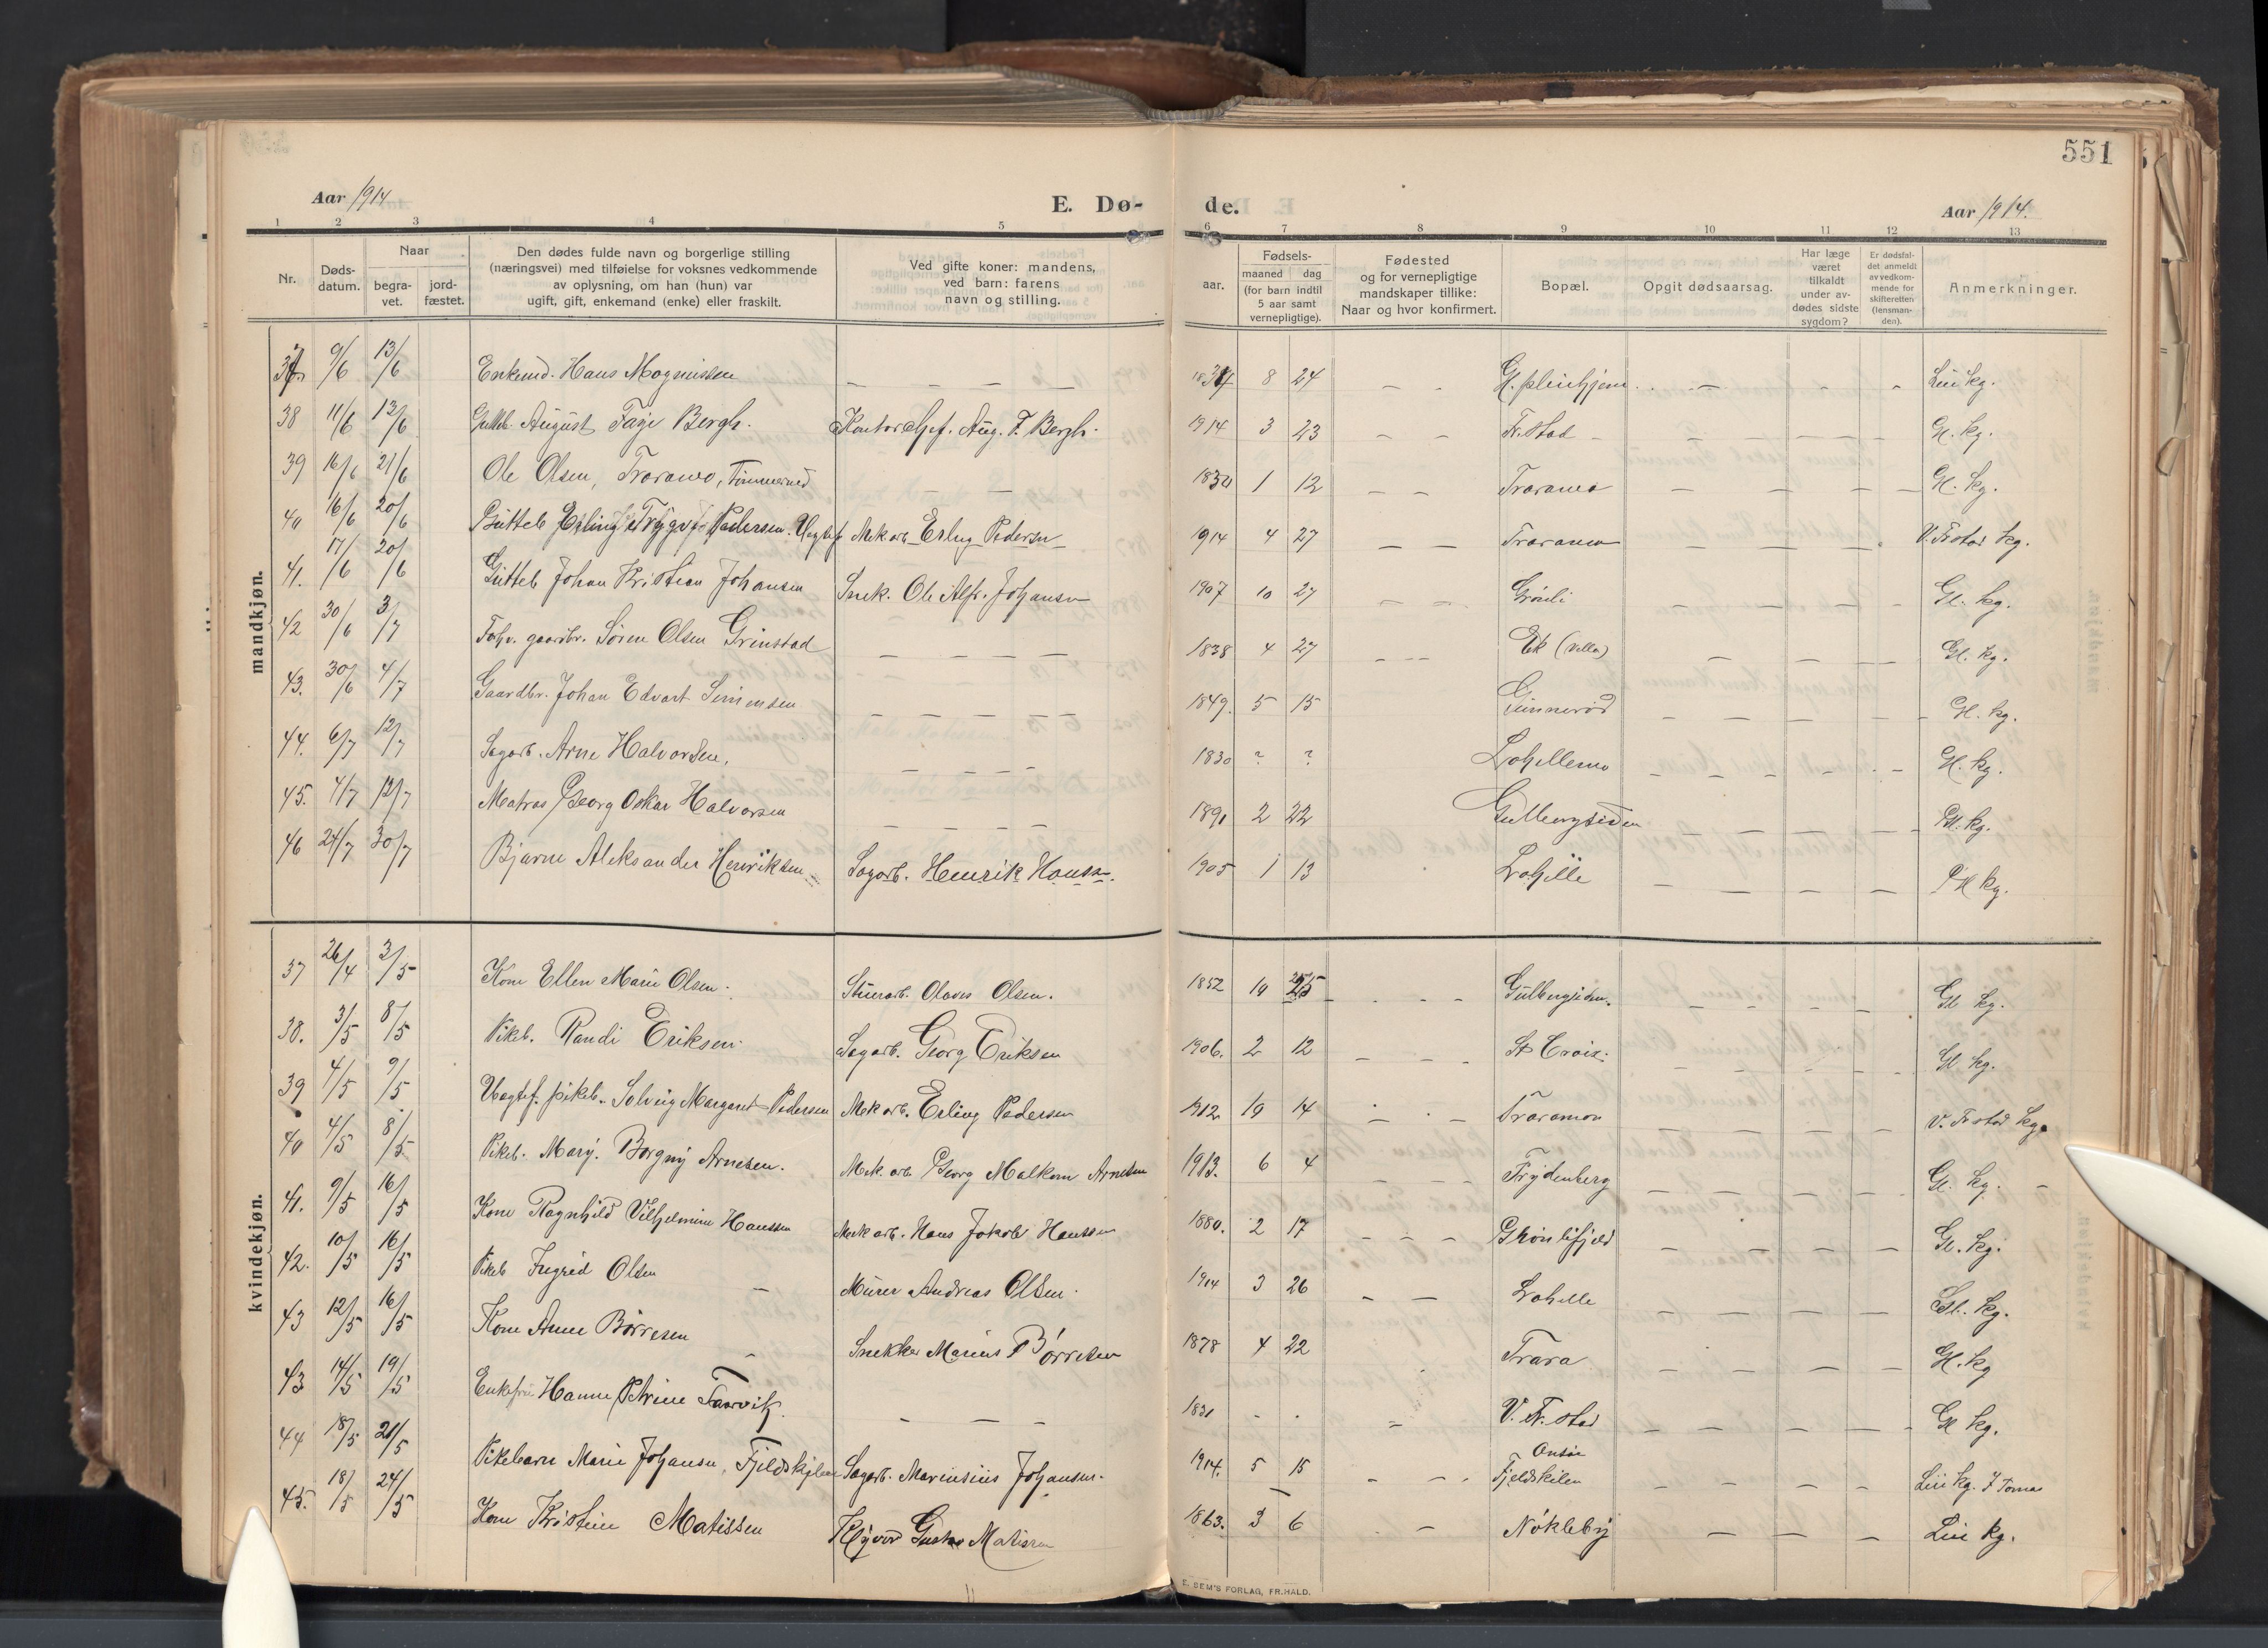 551
Aar 1914
E. Dø-
de.
Aar 1914.
1 2 3 4 5 6 7 8 9 10 11 12 13
Nr.
Døds-
datum.
Naar
begra-
vet.
jord-
fæstet.
Den dødes fulde navn og borgerlige stilling
(næringsvei) med tilføielse for voksnes vedkommende
av oplysning, om han (hun) var
ugift, gift, enkemand (enke) eller fraskilt.
Ved gifte koner: mandens,
ved barn: farens
navn og stilling.
Fødsels-
aar.
maaned dag
(for barn indtil
5 aar samt
vernepligtige).
Fødested
og for vernepligtige
mandskaper tillike:
Naar og hvor konfirmert.
Bopæl.
Opgit dødsaarsag.
Har læge
været
tilkaldt
under av-
dødes sidste
sygdom?
Er dødsfal-
det anmeldt
av vedkom-
mende for
skifteretten
(lensman-
den).
Anmerkninger.
mandkjøn.
37 9/6 13/6 Enkemd. Hans Magnussen — — — — 1834 8 24 — - Gl. pleiehjem. — - - Lie kg.
38 11/6 13/6 Gutteb. August Fage Bergh. Kontorchef. Aug. F. Bergh. 1914 3 23 — — Fr.stad — — — — Gl. kg.
39 16/6 21/6 Ole Olsen, Traramo, Tømmermd — — 1830 1 12 — — Traramo — — — — Gl. kg.
40 16/6 20/6 Gutteb Erling Trygve Pedersen. Uægtef Mek arb Erling Pedersen 1914 4 27 — — Traramo — — — . V. Frstad kg.
41. 17/6 20/6 Gutteb Johan Kristian Johansen Snek. Ole Alfr. Johansen 1907 10 27 — — Grönli — — — Gl. kg.
42 30/6 3/7 Forhv. gaardbr. Sören Olsen Grimstad — — — — 1838 4 27 — — Ek (Villa) — — — — Gl. kg.
43. 30/6 4/7 Gaardbr. Johan Edvart Simensen — — — — 1849. 5 15 Gunneröd — — — — Gl. kg.
44. 6/7 12/7 Sagarb. Arne Halvorsen, — — — — 1830 ? ? Lahellemo — — — — Gl. kg.
45. 4/7 12/7 Matros Georg Oskar Halvorsen — — — — 1891 2 22 Gulbergsiden — — — — Gl. kg.
46 24/7 30/7 Bjarne Aleksander Henriksen Sagarb. Henrik Hansen. 1905 1 13 Lahelle — — — — Gl kg.
kvindekjøn.
37 26/4 3/5 Kone Ellen Marie Olsen. Stuerarb. Olaves Olsen. 1852 10 25 - - - Gulbergsiden. — — — - Gl kg.
38. 3/5 8/5 Pikeb. Randi Eriksen. Sagarb. Georg Eriksen 1906. 2 12 — — — St Croix. — — — — Gl kg.
39 4/5 9/5 Uægtef. pikeb. Solveig Margaret Pedersen Mek arb. Erling Pedersen 1912 10 14 — — Traramoen — — — — V. Frstad kg.
40 4/5 8/5 Pikeb. Mary. Borgny Arnesen. Mek. arb Georg Malkom Arnesen 1913. 6 4 — — — Frydenberg — — — — Gl. kg. -
41. 9/5 16/5 Kone Ragnhild Vilhelmine Hanssen Mek arb. Hans Jakob Hanssen 1880. 2 17 — — — Grönlifjeld — — — — Gl. kg.
42. 10/5 16/5 Pikeb Ingrid Olsen — Murer Andreas Olsen. 1914 3 26 — — Lahelle — — — — Gl. kg.
43 12/5 16/5 Kone Anne Börresen — Snekker Marius Börresen 1878 4 22 Trara — — — — Gl. kg
43 14/5 19/5 Enkefru Hanne Petrine — — — 1831 - . — V. Fr. stad — — — — Gl kg.
44 18/5 21/5 Pikebarn Marie Johansen, Fjeldskilen Sagarb. Marinsius Johansen. 1914. 5 15 — — Onsøe
Fjeldskilen — — — — Lie kg. F
45. 18/5 24/5 Kone Kristine Matissen Gustav Matissen 1863. 3 6 . — Nökleby — — — Lie kg.
E. SEM'S FORLAG, FR.HALD.